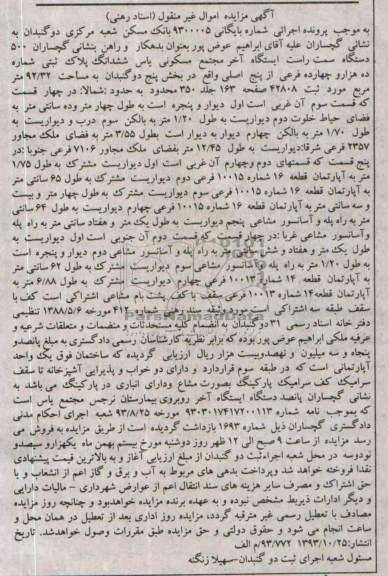 آگهی مزایده اموال غیر منقول (اسناد رهنی)
به موجب پرونده اجرائی شماره بایگانی ۹۳۰۰۰۰۵ بانک مسکن شعبه مرکزی دوگنبدان به
نشانی گچساران علیه آقای ابراهیم عوض پور بعنوان بدهکار و راهن بنشانی گچساران ۵۰۰
دستگاه سمت راست ایستگاه آخر مجتمع مسکونی یاس ششدانگ پلاک ثبتی شماره
ده هزارو چهارده فرعی از پنج اصلی واقع در بخش پنج دوگنبدان به مساحت ۹۲/۳۲ متر
مربع مورد ثبت ۴۲۸۰۸ صفحه ۱۶۳ جلد ۳۵۰ محدود به حدود :شمالا: در چهار قسمت
که قسمت سوم آن غربی است اول دیوار و پنجره است به طول چهار متر وده سانتی متر به
فضای حیاط خلوت دوم دیواریست به طول ۱/۲۰ متر به بالکن سوم درب و دیواریست به
طول ۱/۷۰ متر به بالکن چهارم دیوار به دیوار است بطول ۳/۵۵ متر به فضای ملک مجاور
۲۳۵۷ فرعی شرقا:دیواریست به طول ۱۲/۴۵ متر بفضای ملک مجاور ۷۱۰۶ فرعی جنوبا :در
پنج قسمت که قسمتهای دوم وچهارم آن غربی است اول دیواریست مشترک به طول ۱/۷۵
متر به آپارتمان قطعه ۱۶ شماره ۱۰۰۱۵ فرعی دوم دیواریست مشترک به طول ۶۵ سانتی متر
به آپارتمان قطعه ۱۶ شماره ۱۰۰۱۵ فرعی سوم دیواریست مشترک به طول چهار متر و بیست
و سه سانتی متر به آپارتمان قطعه ۱۶ شماره ۱۰۰۱۵ فرعی چهارم دیواریست به طول ۶۴ سانتی
متر به راه پله و آسانسور مشاعی پنجم دیواریست به طول یک متر و هفتاد سانتی متر به راه پله
و آسانسور مشاعی غربا :در چهار قسمت که قسمت دوم آن جنوبی است اول دیواریست به
طول یک متر و هفتاد و شش سانتی متر به راه پله و آسانسور مشاعی دوم دیوار و پنجره است
به طول ۱/۲۰ متر به راه پله و آسانسور مشاعی سوم دیواریست مشترک به طول ۶۲ سانتی متر
به آپارتمان قطعه ۱۴ شماره ۱۰۰۱۳ فرعی چهارم دیواریست مشترک به طول ۶/۸۸ متر به
آپارتمان قطعه۱۴ شماره ۱۰۰۱۳ فرعی سقف با کف پشت بام مشاعی اشتراکی است کف با
سقف طبقه سه اشتراکی است سند رهنی شماره ۴۱۴ مورخه ۱۳۸۸/۵/۶ تنظیمی
دفتر خانه اسناد رسمی ۳۱ دوگنبدان به انضمام کلیه مستحدثات و منضمات و متعلقات شرعیه و
عرفیه ملکی ابراهیم عوض پور بوده که برابر نظریه کارشناسان رسمی دادگستری به مبلغ پانصدو
پنجاه و سه میلیون و نهصدوبیست هزار ریال ارزیابی گردیده که ساختمان فوق یک واحد
آپارتمانی است که در طبقه سوم قراردارد و دارای دو خواب و پذیرایی آشپزخانه تا سقف
سرامیک کف سرامیک پارکینگ بصورت مشاع ودارای انباری در پارکینگ می باشد به
نشانی گچساران پانصد دستگاه ایستگاه آخر روبروی بیمارستان نرجس مجتمع یاس است
که بموجب نامه شماره ۹۳۰۳۰۱۷۴۱۷۲۰۰۱۱۳ مورخه ۹۳/۸/۲۵ شعبه اجرای احکام مدنی
دادگستری گچساران ذیل شماره ۱۶۹۳ بازداشت گردیده است از طریق مزایده به فروش می
رسد مزایده از ساعت ۹ صبح الی ۱۲ ظهر روز دوشنبه مورخ بیستم بهمن ماه یکهزارو سیصدو
نودوسه در محل شعبه اجراءثبت دو گنبدان از مبلغ ارزیابی آغاز و به بالاترین قیمت پیشنهادی
نقدا فروخته خواهد شد وپرداخت بدهی های مربوط به آب و برق و گاز اعم از انشعاب و یا
حق اشتراک و مصرف سایر هزینه های سند انتقال اعم از عوارض شهرداری – مالیات دارایی
و دیگر ادارات ذیربط مشخص نبوده و به عهده برنده مزایده خواهدبود و چنانچه روز مزایده
مصادف با تعطیل رسمی غیر مترقبه گردد، مزایده روز اداری بعد از تعطیل در همان محل و
ساعت انجام می شود و حقوق دولتی و حق مزایده طبق مقررات وصول خواهدشد. تاریخ
انتشار:۱۳۹۳/۱۰/۲۵ ۹۳/۷۷۲/م الف
مسئول شعبه اجرای ثبت دو گنبدان-سهیلا زنگنه